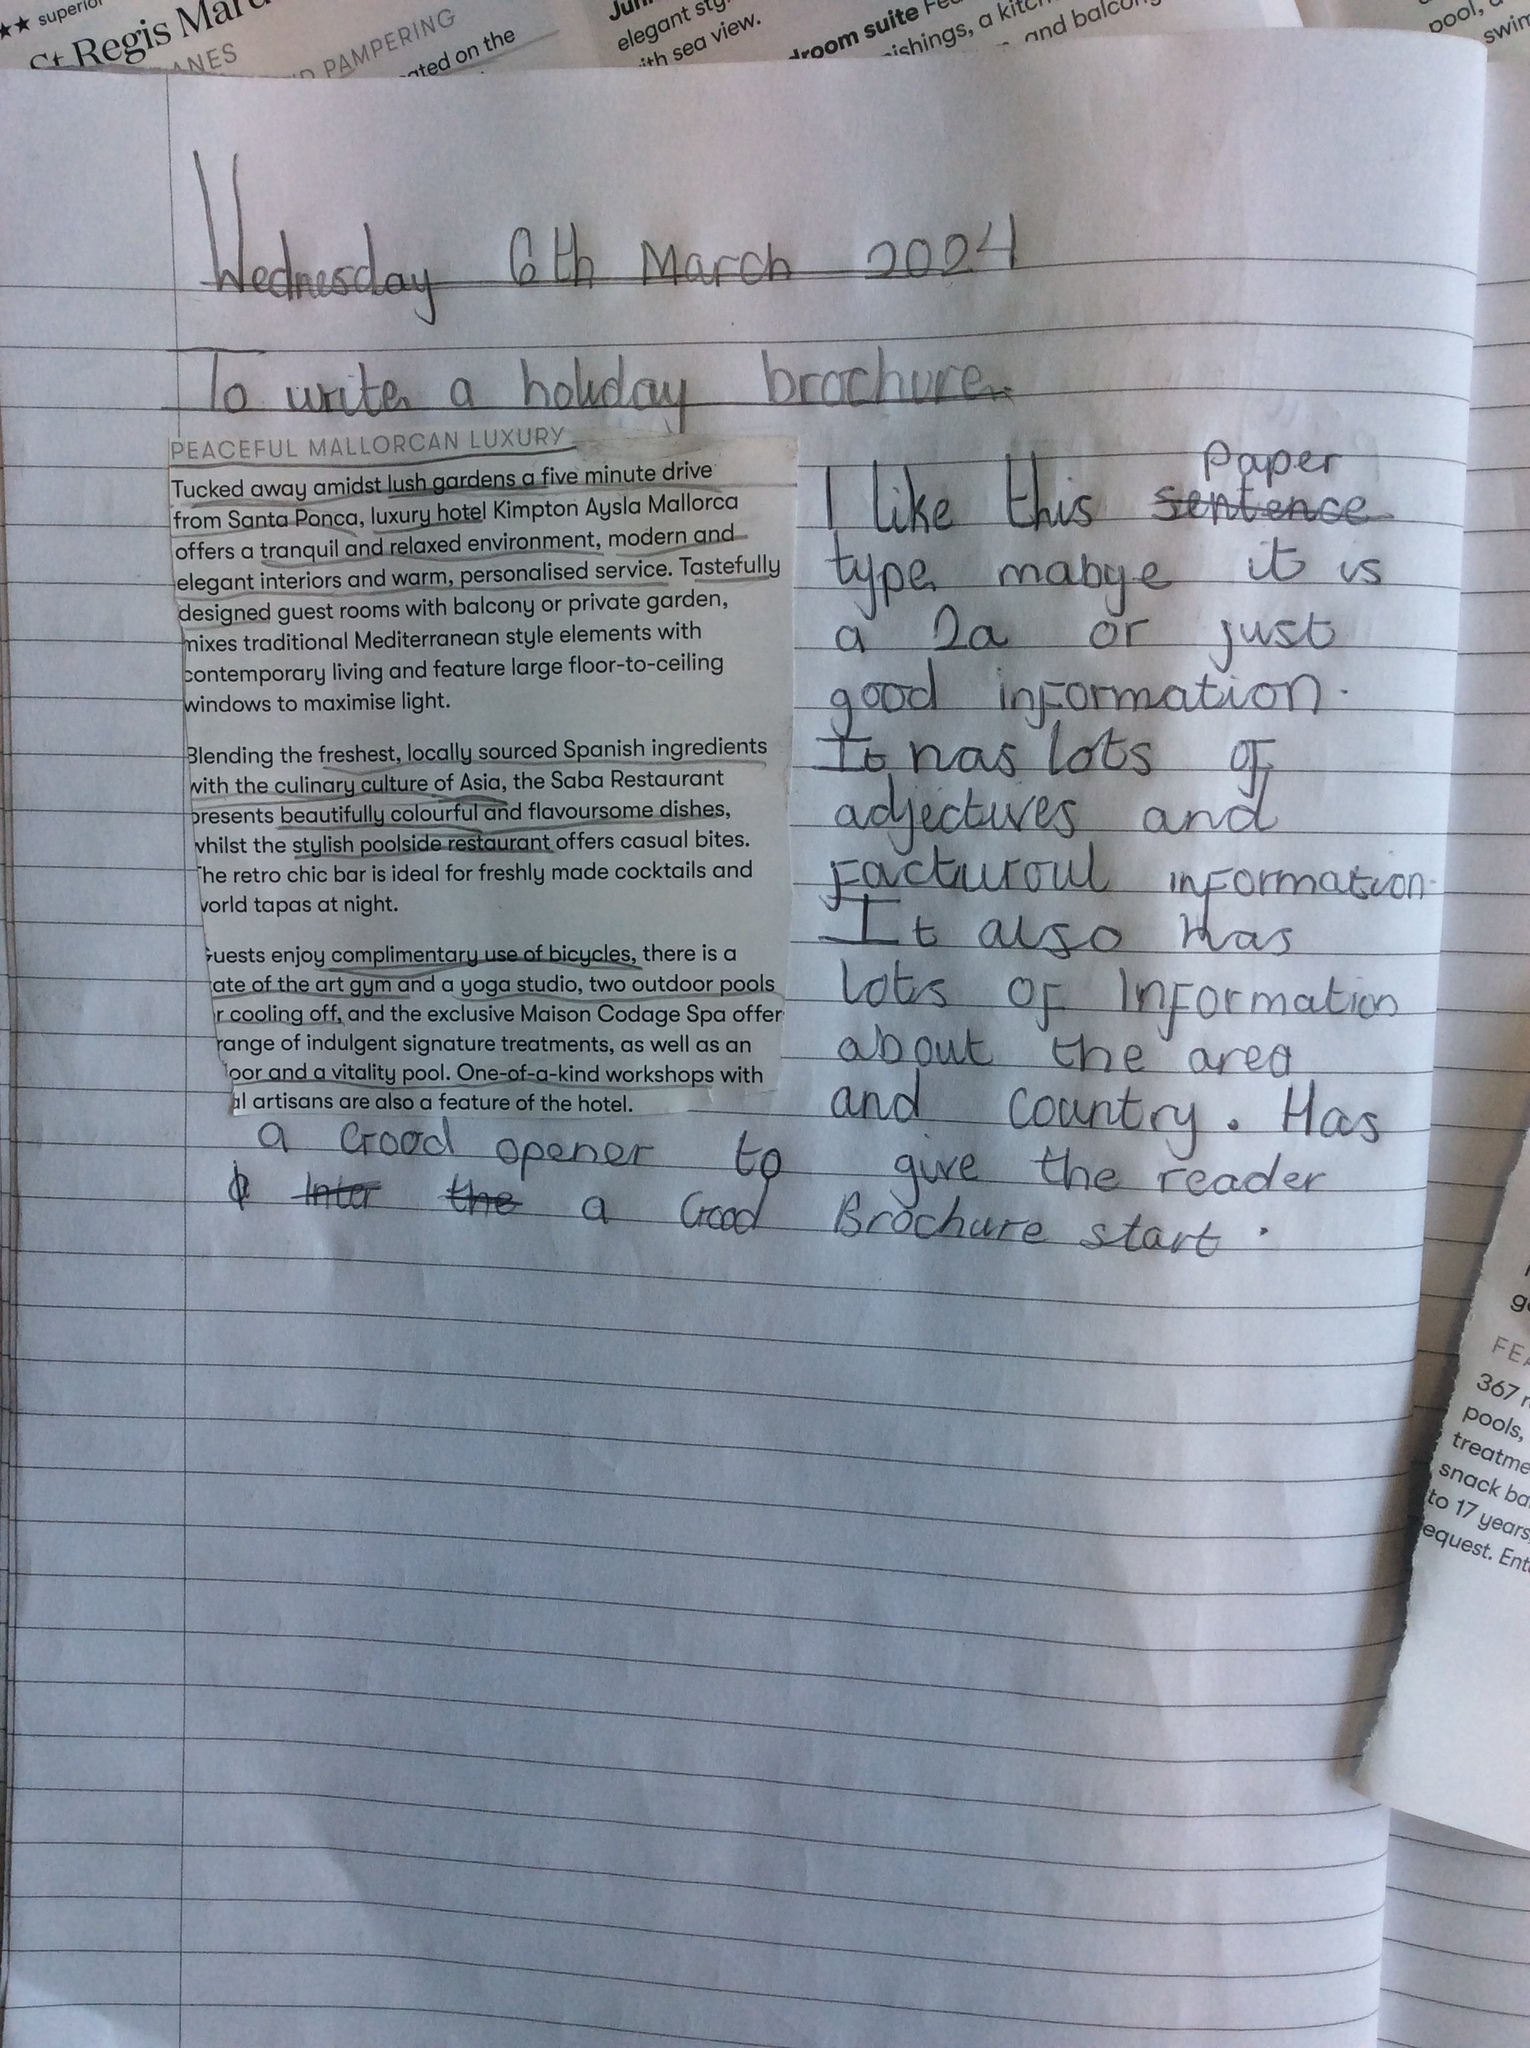 ★★ superior
St Regis Mar
ANES
PAMPERING
ated on the
elegant sty
ith sea view.
droom suite Fe
ishings, a kitch
and balcony
pool,
swim
Wednesday 6th March 2024
To write a holiday brochure.
PEACEFUL MALLORCAN LUXURY
Tucked away amidst lush gardens a five minute drive
from Santa Ponca, luxury hotel Kimpton Aysla Mallorca
offers a tranquil and relaxed environment, modern and
elegant interiors and warm, personalised service. Tastefully
designed guest rooms with balcony or private garden,
mixes traditional Mediterranean style elements with
contemporary living and feature large floor-to-ceiling
windows to maximise light.
Blending the freshest, locally sourced Spanish ingredients
with the culinary culture of Asia, the Saba Restaurant
presents beautifully colourful and flavoursome dishes,
whilst the stylish poolside restaurant offers casual bites.
The retro chic bar is ideal for freshly made cocktails and
world tapas at night.
Guests enjoy complimentary use of bicycles, there is a
ate of the art gym and a yoga studio, two outdoor pools
r cooling off, and the exclusive Maison Codage Spa offer
range of indulgent signature treatments, as well as an
oor and a vitality pool. One-of-a-kind workshops with
al artisans are also a feature of the hotel.
Paper
I like this sentence
type mabye it is
a 2a or just
good information.
It has lots of
adjectives and
facturoul information.
It also has
lots of Information
about the area
and country. Has
a Good opener to give the reader
Inter the a Good Brochure start.
FEA
367 r
pools,
treatme
snack ba
to 17 years
equest. Ent